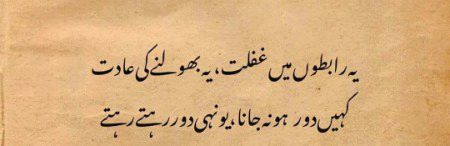 یہ رابطوں میں غفلت، یہ بھولنے کی عادت
کہیں دور ہو نہ جانا، یونہی دور رہتے رہتے